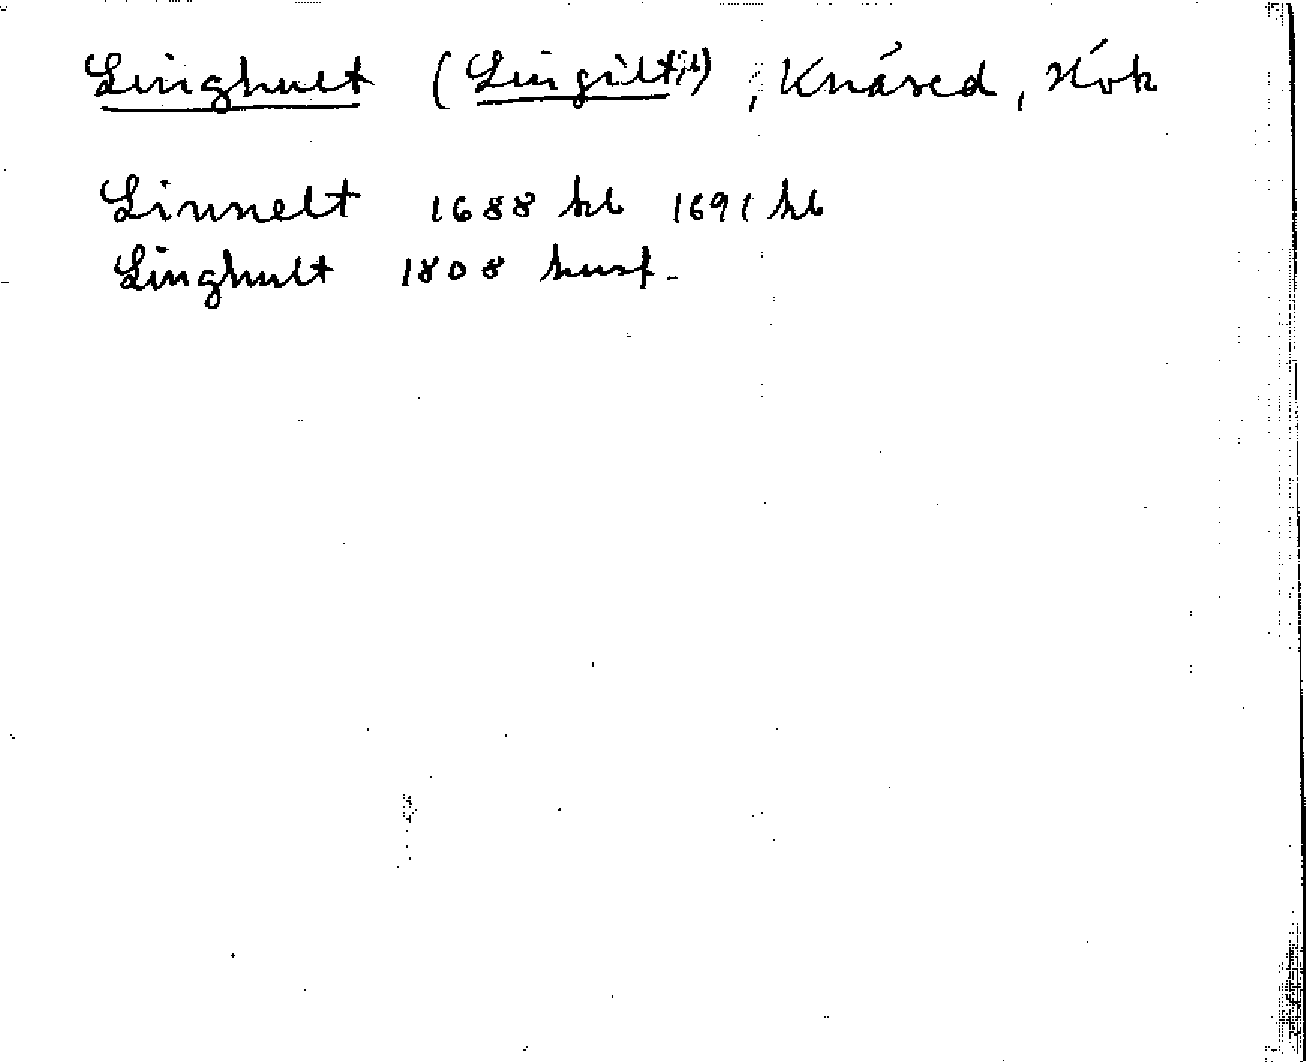 Linghult (Lingilt), Knäred, Hök
Linnelt 1688 kb 1691 kb
Linghult 1808 husf.